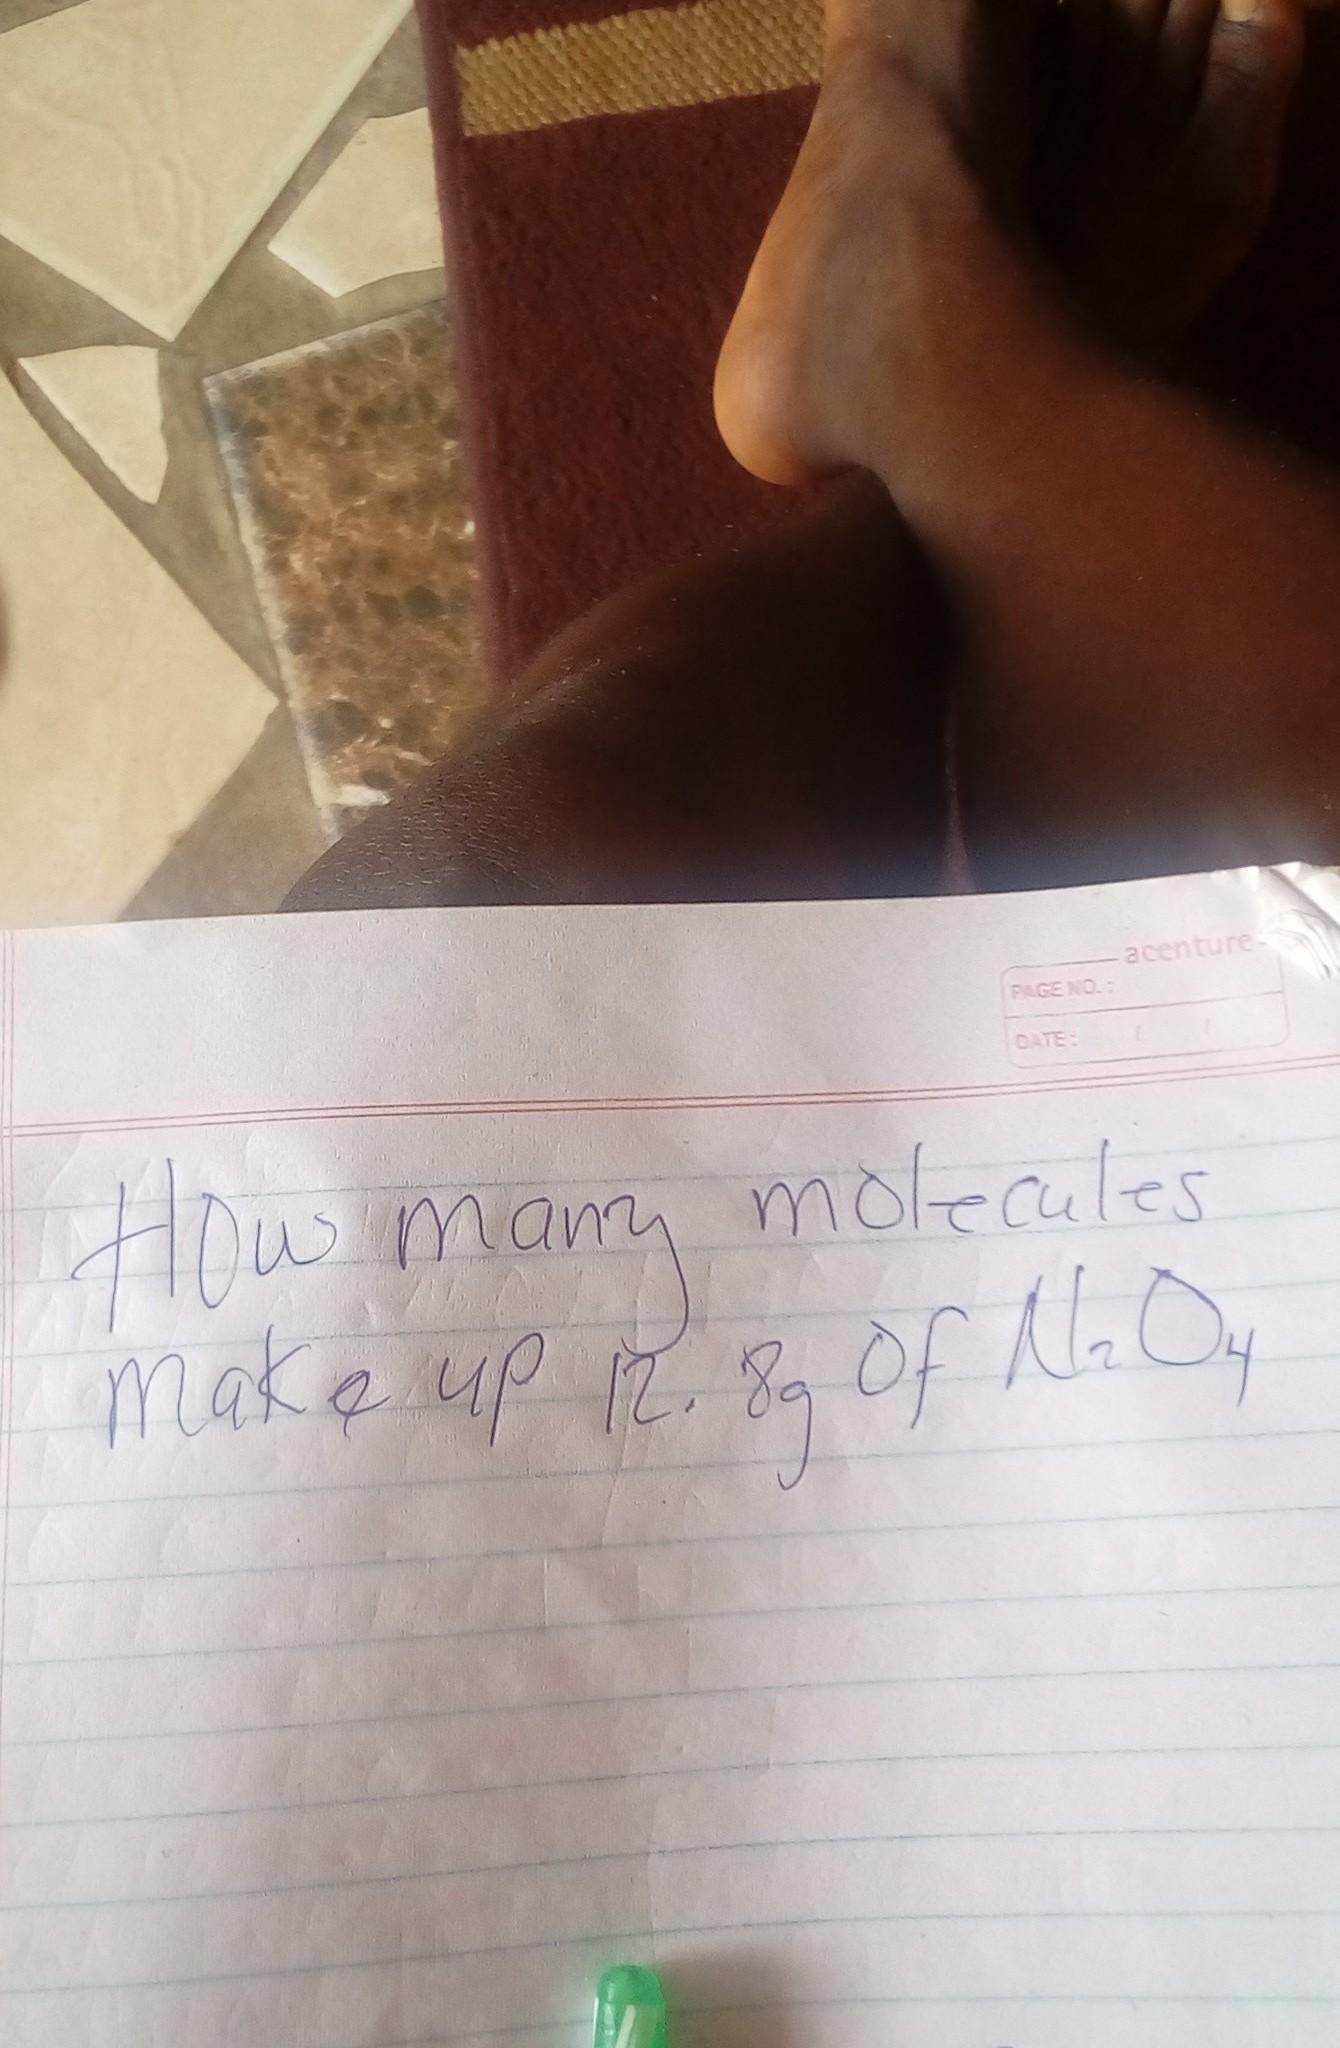 acenture
PAGE NO.:
DATE: / /
How many molecules
make up 12.8g of N₂O₄